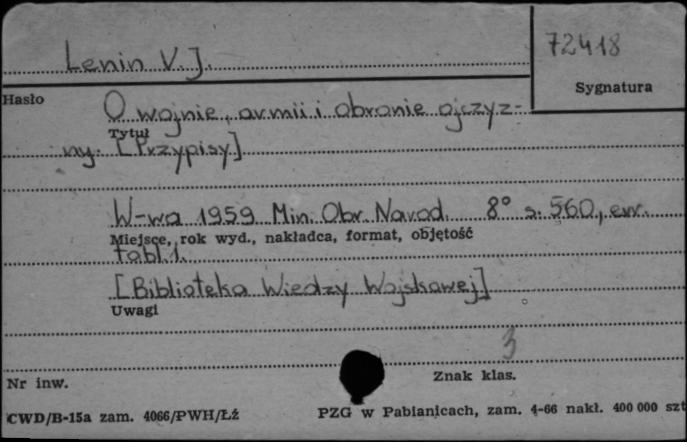 Lenin V. J.
72418
Hasło
Sygnatura
O wojnie, armii i obronie ojczyz-
Tytuł
ny. [Przypisy]
W-wa 1959 Min. Obr. Narod. 8° s. 560,
Miejsce, rok wyd., nakładca, format, objętość
tabl. 1.
[Biblioteka Wiedzy Wojskowej]
Uwagi
3
Nr inw.
Znak klas.
CWD/B-15a zam. 4066/PWH/Łź
PZG w Pabianicach, zam. 4-66 nakł. 400 000 szt